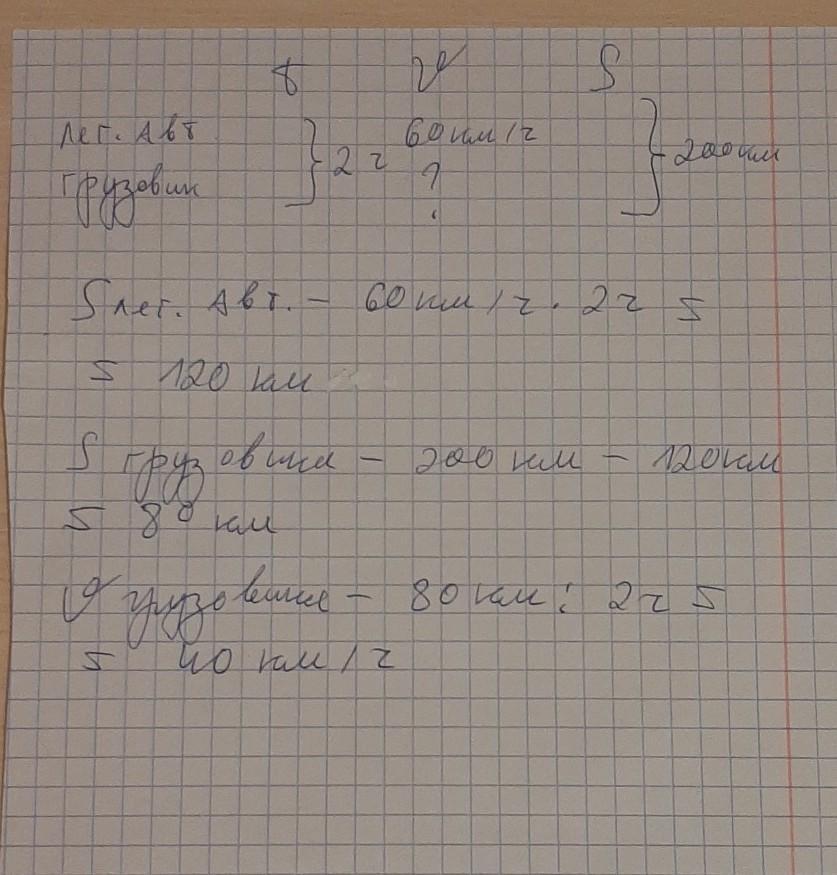 t v S
лег. Авт. } 2 ч 60 км/ч } 200 км
грузовик ?
S лег. Авт. – 60 км/ч · 2ч =
= 120 км
S грузовика – 200 км – 120 км
= 80 км
v грузовика – 80 км : 2ч =
= 40 км/ч